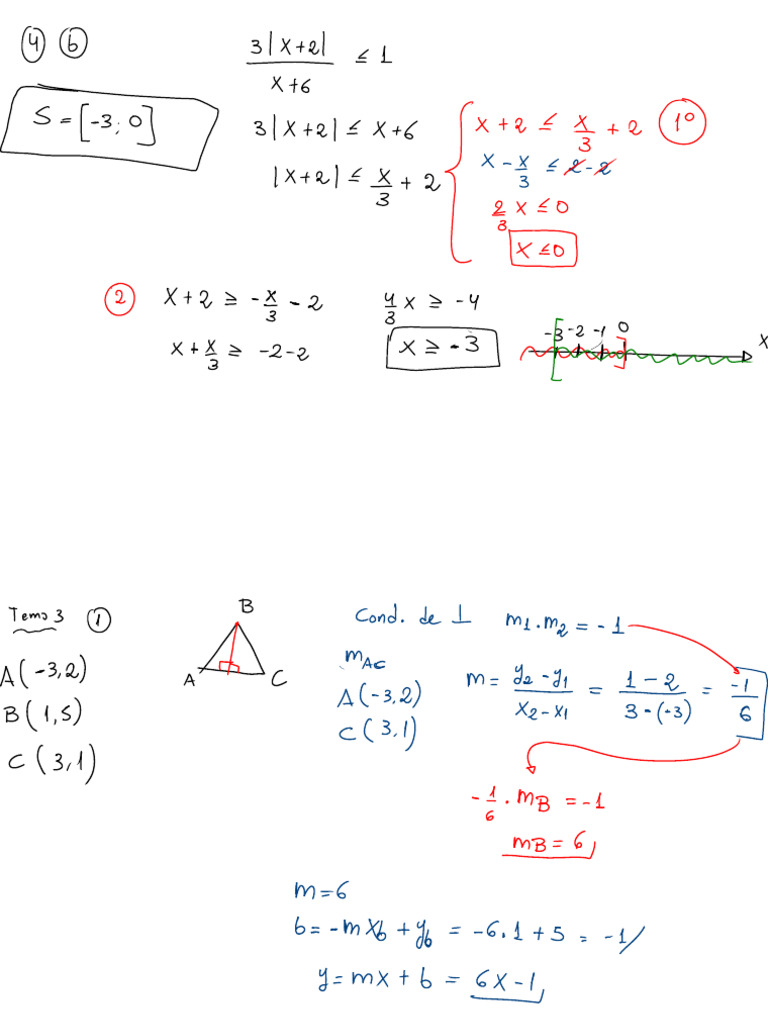 4 6
3|x+2| / x+6 ≤ 1
S = [-3; 0]
3|x+2| ≤ x+6
|x+2| ≤ x/3 + 2
x+2 ≤ x/3 + 2 1º
x - x/3 ≤ 2-2
2/3 x ≤ 0
x ≤ 0
2 x+2 ≥ -x/3 - 2
x + x/3 ≥ -2-2
4/3 x ≥ -4
x ≥ -3
-3 -2 -1 0 x
Tema 3 1
A(-3,2)
B(1,5)
C(3,1)
B
A C
Cond. de ⊥ m1.m2 = -1
mAC
A(-3,2)
C(3,1)
m = y2-y1 / x2-x1 = 1-2 / 3-(-3) = -1/6
-1/6 . mB = -1
mB = 6
m=6
b = -mxb + yb = -6.1+5 = -1
y = mx + b = 6x-1